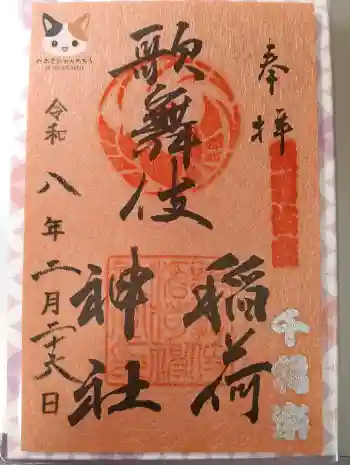 奉拝
歌舞伎
稲荷
神社
令和八年二月二十六日
千穐楽